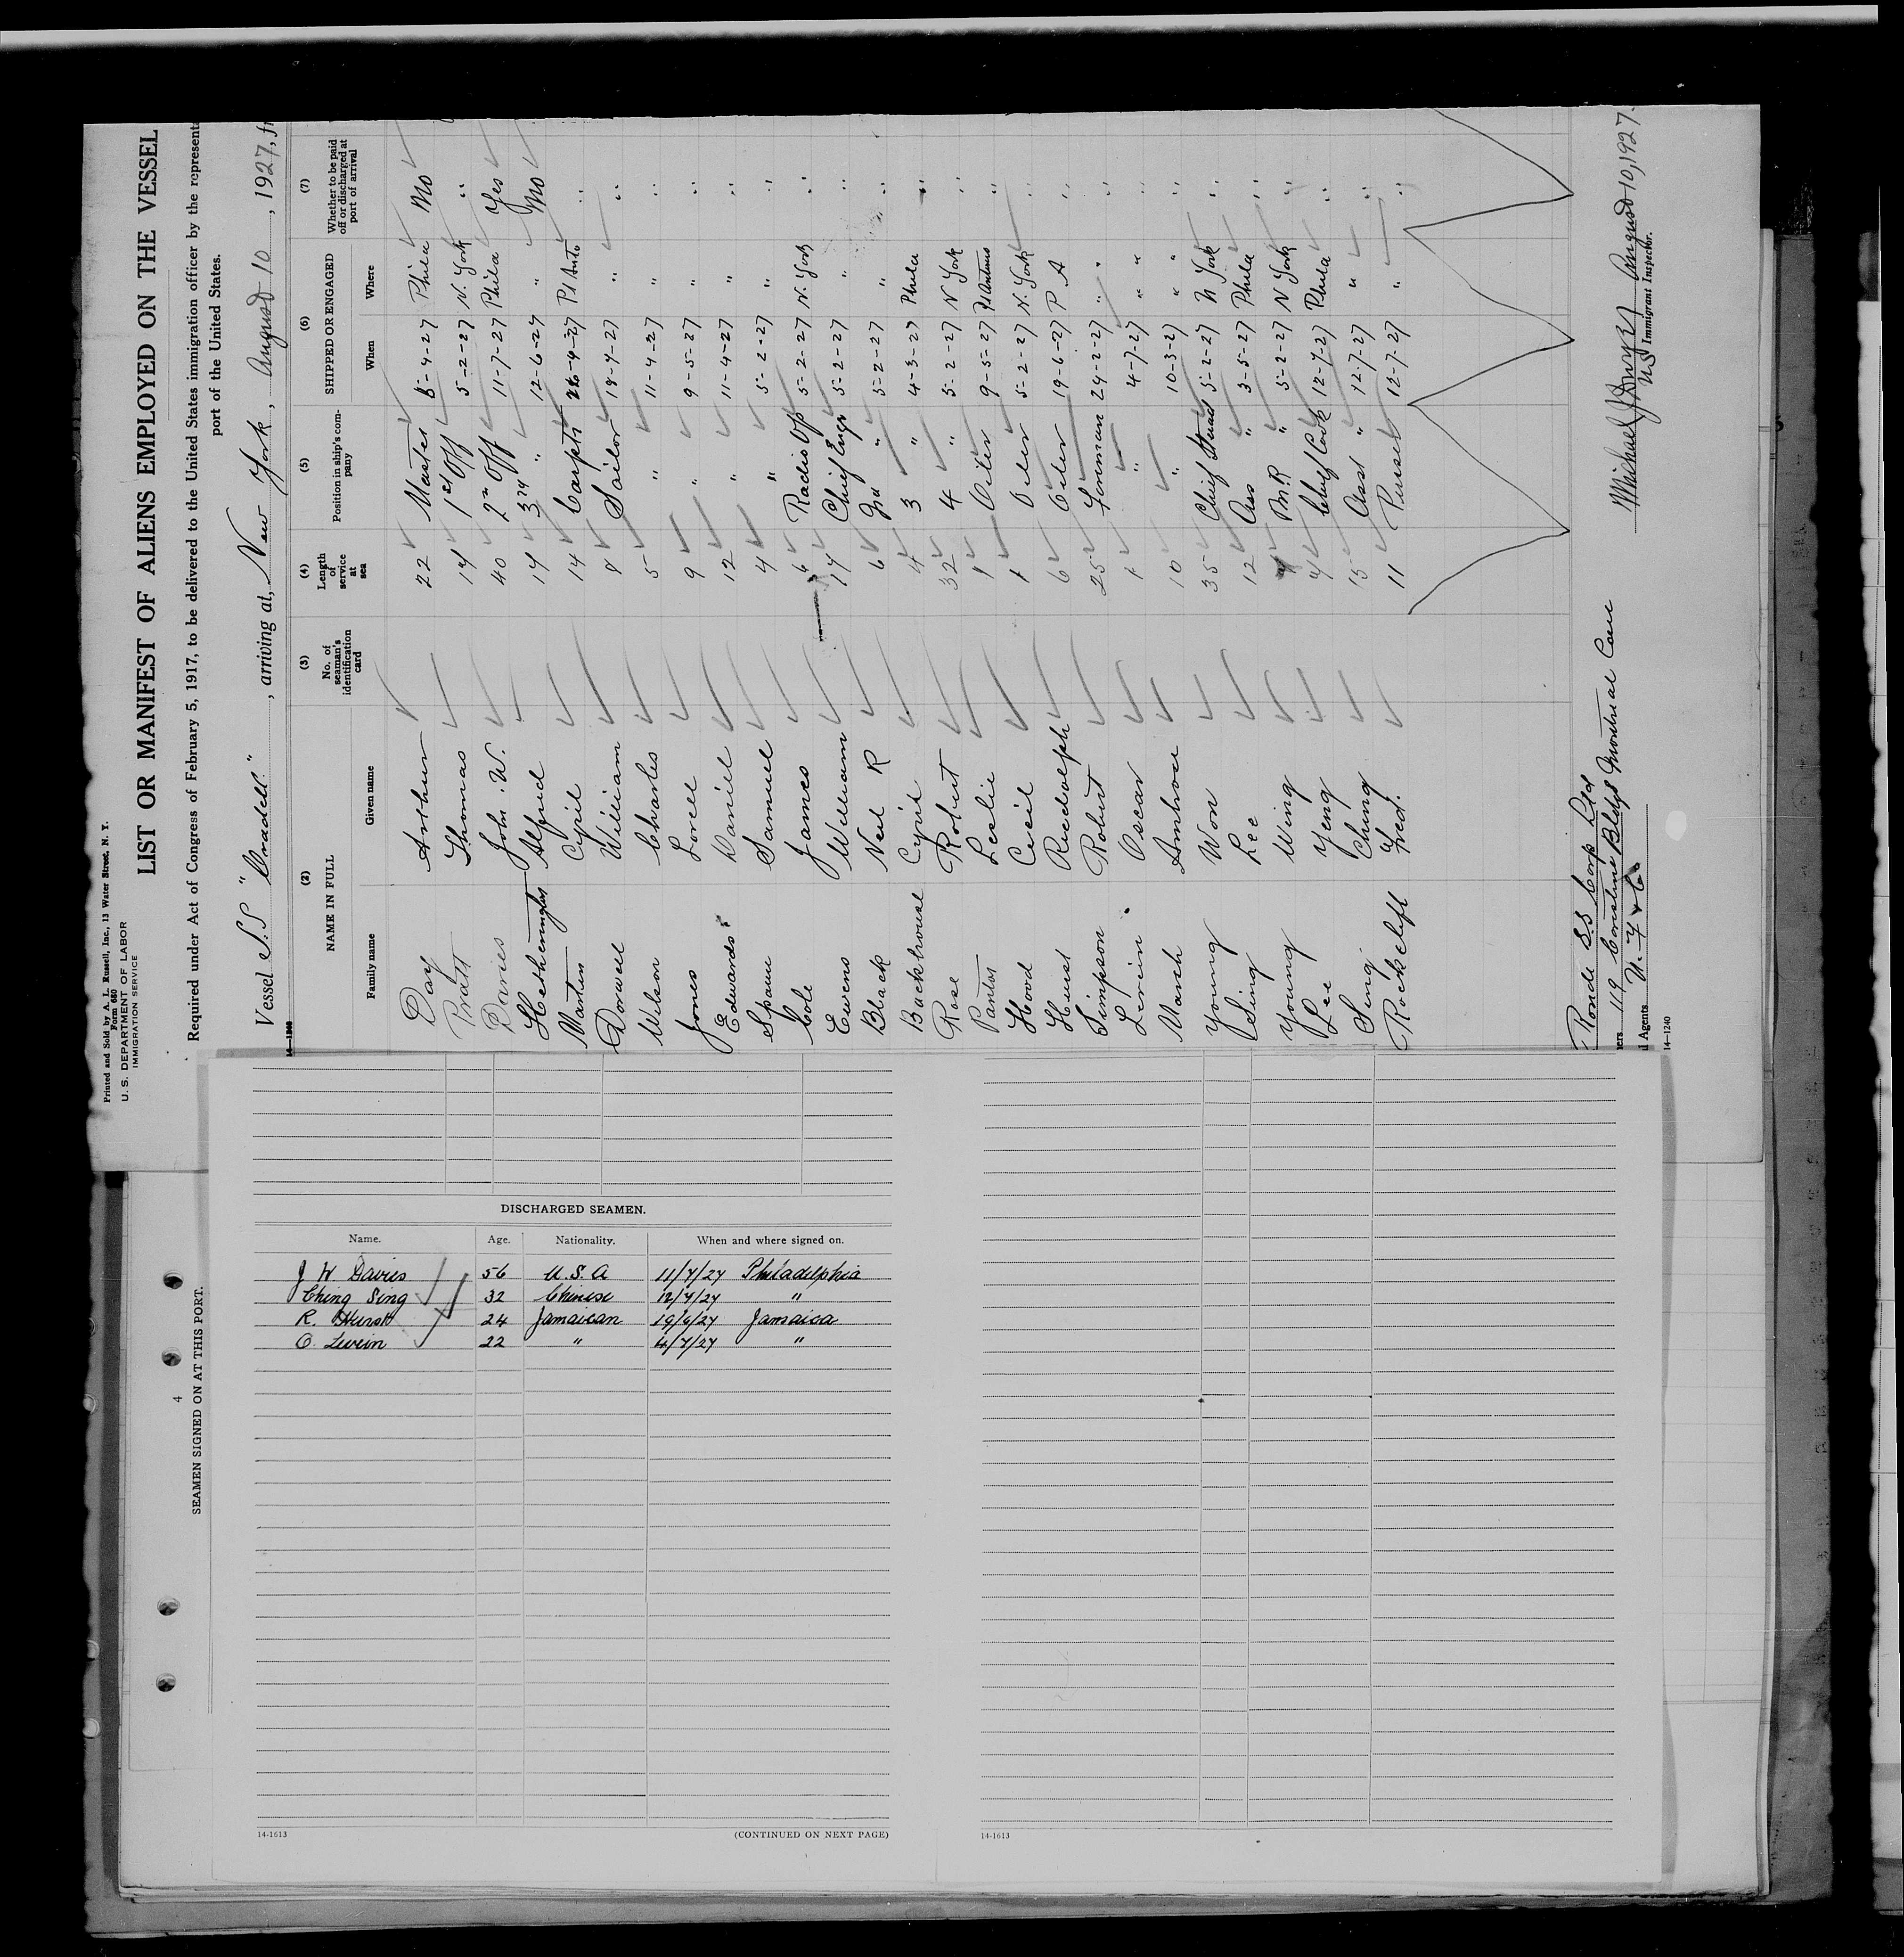 Printed and Sold by A. L. Russell, Inc., 13 Water Street, N. Y.
Form 680
U. S. DEPARTMENT OF LABOR
IMMIGRATION SERVICE
LIST OR MANIFEST OF ALIENS EMPLOYED ON THE VESSEL
Required under Act of Congress of February 5, 1917, to be delivered to the United States immigration officer by the representa
port of the United States.
Vessel S.S. , arriving at, New York, August 10, 1927, fr
(2) (3) (4) (5) (6) (7)
NAME IN FULL No. of seaman's identification card Length of service at sea Position in ship's company SHIPPED OR ENGAGED Whether to be paid off or discharged at port of arrival
Family name Given name When Where
Day Arthur 22 Master 8-4-27 Phila No
Pratt Thomas 14 1st Off 5-2-27 N. York "
Davies John W. 40 2nd Off 11-7-27 Phila Yes
Hetherington Alfred 14 3rd " 12-6-27 " No
Martin Cyril 14 Carptr 26-4-27 Pt Anto "
Dorwell William 8 Sailor 18-4-27 " "
Wilson Charles 5 " 11-4-27 " "
Jones Lovell 9 " 9-5-27 " "
Edwards Daniel 12 " 11-4-27 " "
Spaun Samuel 4 " 5-2-27 " "
Cole James 6 Radio Op 5-2-27 N. York "
Ewens William 17 Chief Engr 5-2-27 " "
Black Neil R 6 " 5-2-27 " "
Backhouse Cyril 4 3 " 4-3-27 Phila "
Rose Robert 32 4 " 5-2-27 N York "
Panton Leslie 1 Oiler 9-5-27 Pt Antonio "
Hood Cecil 1 Oiler 5-2-27 N. York "
Hurst Rudolph 6 Oiler 19-6-27 P A "
Simpson Robert 25 Fireman 24-2-27 " "
Levein Oscar 1 " 4-7-27 " "
Marsh Ambrose 10 " 10-3-27 " "
Young Won 35 Chief Stuad 5-2-27 N York "
Sing Lee 12 Ass " 3-5-27 Phila "
Young Wing 4 M.R " 5-2-27 N York "
Lee Yeng 4 Chief Cook 12-7-27 Phila "
Sing Ching 15 Asst " 12-7-27 " "
Rockclyft Fred. 11 Purser 12-7-27 " "
Ronde S.S Corp Ltd
ners 119 Coristine Bldg Montreal Can
l Agents
14-1240
Michael J August 10, 1927.
US Immigrant Inspector.
4
SEAMEN SIGNED ON AT THIS PORT.
DISCHARGED SEAMEN.
Name. Age. Nationality. When and where signed on.
J W Davies 56 U.S.A 11/7/27 Philadelphia
Ching Sing 32 Chinese 12/7/27 "
R. Hurst 24 Jamaican 19/6/27 Jamaica
O. Levein 22 " 4/7/27 "
14-1613 (CONTINUED ON NEXT PAGE)
14-1613